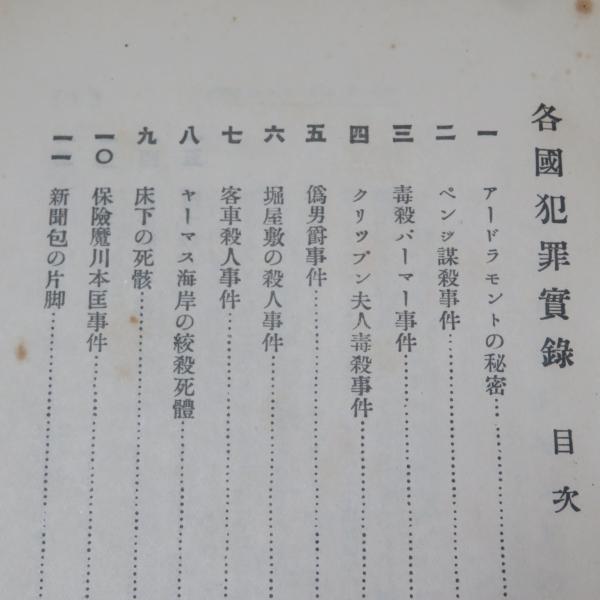 各國犯罪實錄 目次
一 アードラモントの秘密
二 ペンジ謀殺事件
三 毒殺パーマー事件
四 クリツプン夫人毒殺事件
五 僞男爵事件
六 堀屋敷の殺人事件
七 客車殺人事件
八 ヤーマス海岸の絞殺死體
九 床下の死骸
一〇 保險魔川本匡事件
一一 新聞包の片脚